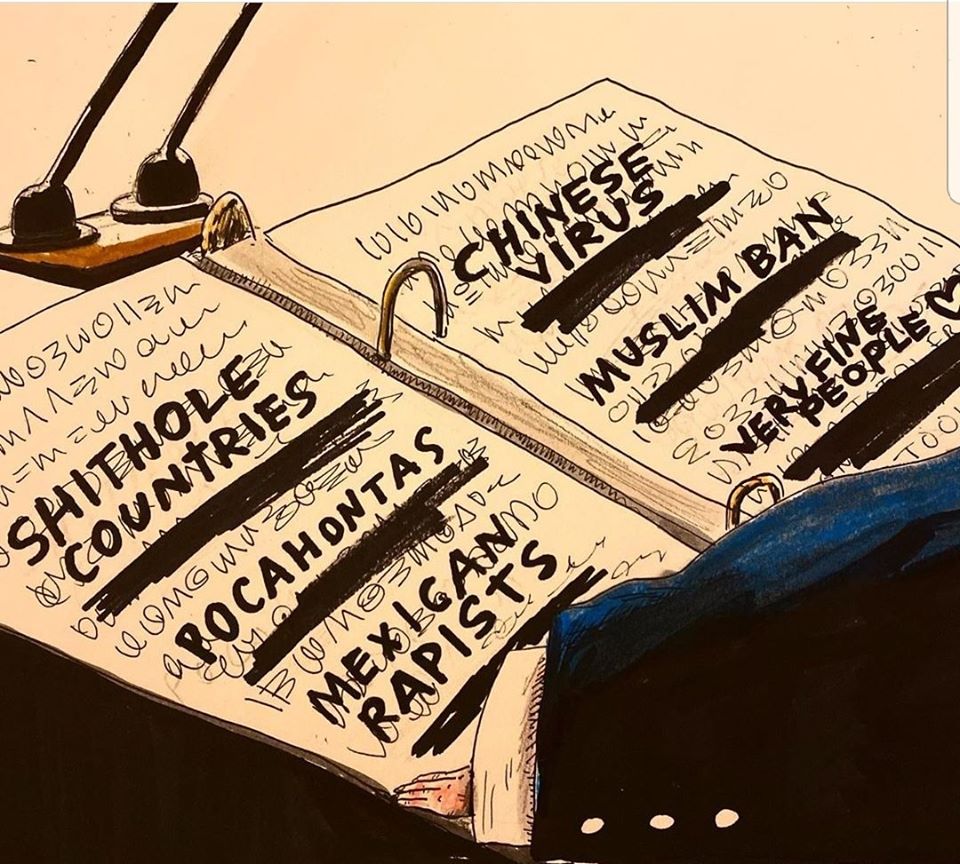 SHITHOLE
COUNTRIES
POCAHONTAS
MEXICAN
RAPISTS
CHINESE
VIRUS
MUSLIM BAN
VERY FINE
PEOPLE